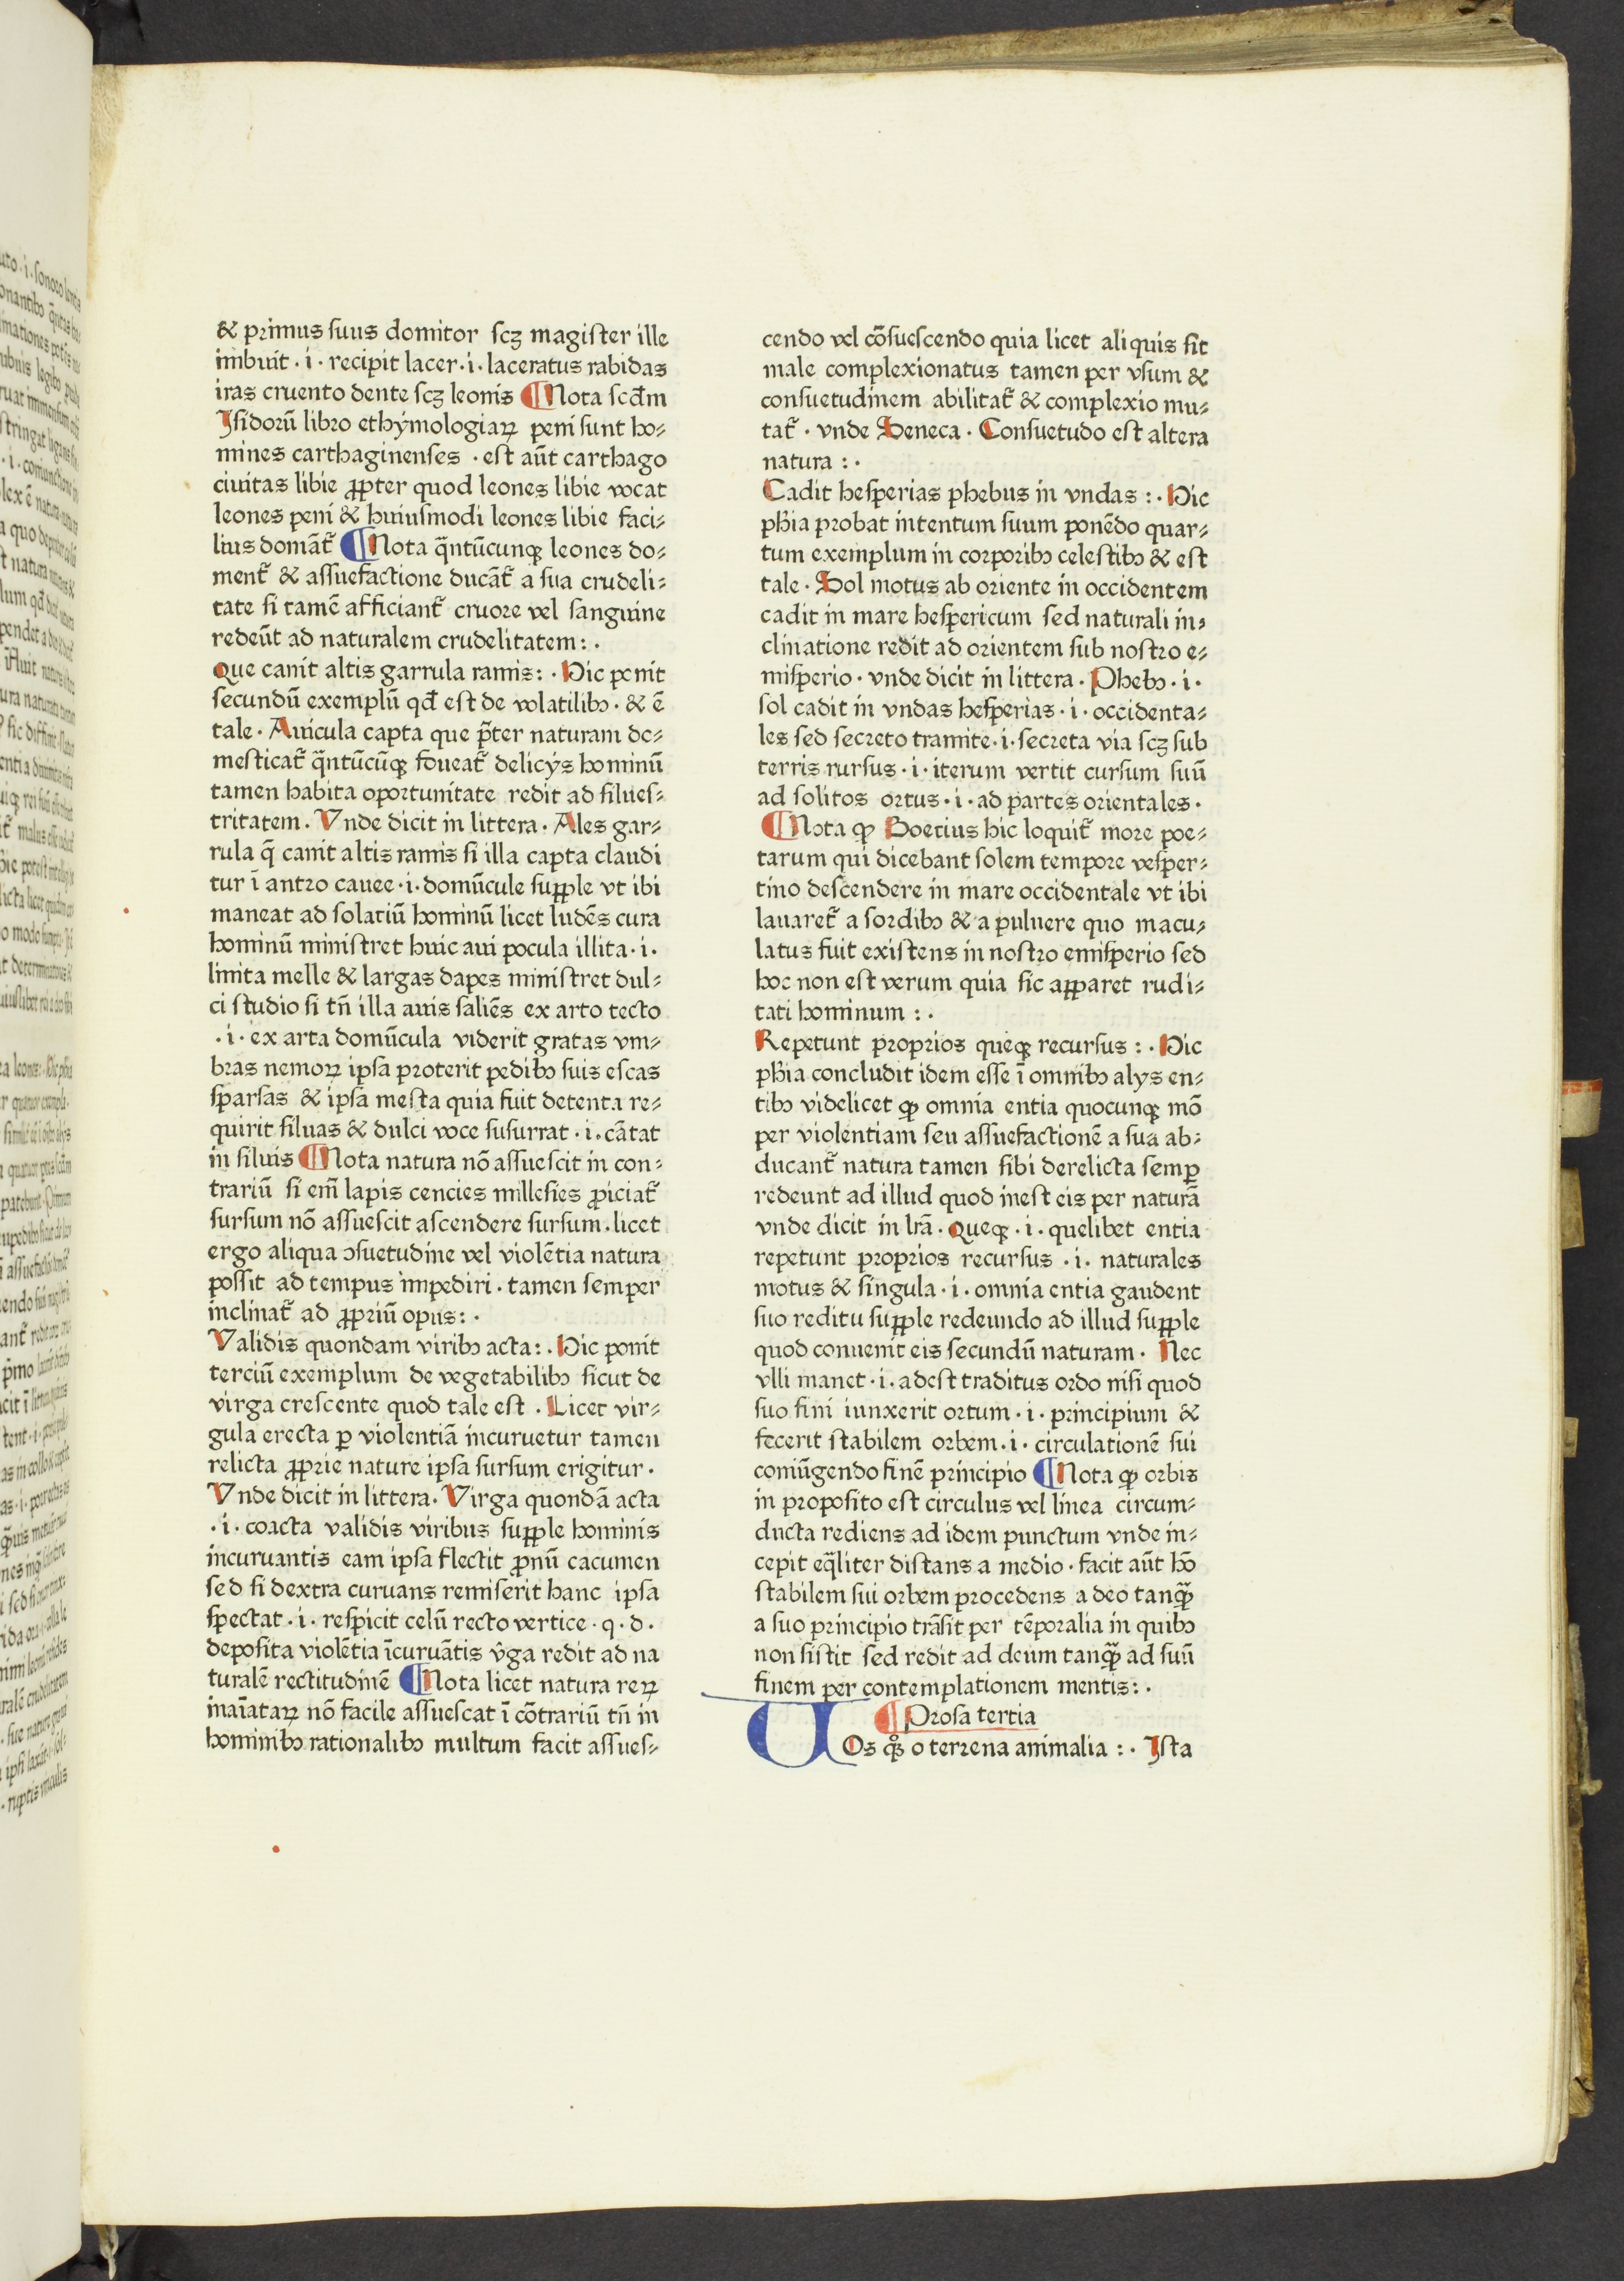 & primus ſuus domitor ſcꝫ magiſter ille
imbuit · i · recipit lacer · i · laceratus rabidas
iras cruento dente ſcꝫ leonis ¶ Nota ſcđm
Iſidorū libro ethẏmologiaꝝ peni ſunt ho⸗
mines carthaginenſes · eſt aūt carthago
ciuitas libie ꝓpter quod leones libie vocat
leones peni & huiuſmodi leones libie faci⸗
lius domāt᷑ ¶ Nota q̄ntūcunqꝫ leones do⸗
ment᷑ & aſſuefactione ducāt᷑ a ſua crudeli⸗
tate ſi tamē afficiant᷑ cruore vel ſanguine
redeūt ad naturalem crudelitatem : ·
Que canit altis garrula ramis : · Hic ponit
ſecundū exemplū qđ eſt de volatilibꝰ · & ē
tale · Auicula capta que p̄ter naturam do⸗
meſticat᷑ q̄ntūcūqꝫ foueat᷑ delicẏs hominū
tamen habita oportunitate redit ad ſilueſ⸗
tritatem · Vnde dicit in littera · Ales gar⸗
rula q̄ canit altis ramis ſi illa capta claudi
tur ī antro cauee · i · domūcule ſuꝑple vt ibi
maneat ad ſolatiū hominū licet ludēs cura
hominū miniſtret huic aui pocula illita · i ·
linita melle & largas dapes miniſtret dul⸗
ci ſtudio ſi tn̄ illa auis ſaliēs ex arto tecto
· i · ex arta domūcula viderit gratas vm⸗
bras nemoꝝ ipſa proterit pedibꝰ ſuis eſcas
ſparſas & ipſa meſta quia fuit detenta re⸗
quirit ſiluas & dulci voce ſuſurrat · i · cātat
in ſiluis ¶ Nota natura nō aſſueſcit in con⸗
trariū ſi em̄ lapis cencies milleſies ꝓiciat᷑
ſurſum nō aſſueſcit aſcendere ſurſum · licet
ergo aliqua ↄſuetudine vel violētia natura
poſſit ad tempus impediri · tamen ſemper
inclinat᷑ ad ꝓpriū opus : ·
Validis quondam viribꝰ acta : · Hic ponit
terciū exemplum de vegetabilibꝰ ſicut de
virga creſcente quod tale eſt · Licet vir⸗
gula erecta ꝑ violentiā incuruetur tamen
relicta ꝓprie nature ipſa ſurſum erigitur ·
Vnde dicit in littera · Virga quondā acta
· i · coacta validis viribus ſuꝑple hominis
incuruantis eam ipſa flectit ꝓnū cacumen
ſed ſi dextra curuans remiſerit hanc ipſa
ſpectat · i · reſpicit celū recto vertice · q · d ·
depoſita violētia īcuruātis v̄ga redit ad na
turalē rectitudinē ¶ Nota licet natura reꝝ
inaīataꝝ nō facile aſſueſcat ī cōtrariū tn̄ in
hominibꝰ rationalibꝰ multum facit aſſueſ⸗
cendo vel cōſueſcendo quia licet aliquis ſit
male complexionatus tamen per vſum &
conſuetudinem abilitat᷑ & complexio mu⸗
tat᷑ · vnde Seneca · Conſuetudo eſt altera
natura : ·
Cadit heſperias phebus in vndas : · Hic
phīa probat intentum ſuum ponēdo quar⸗
tum exemplum in corporibꝰ celeſtibꝰ & eſt
tale · Sol motus ab oriente in occidentem
cadit in mare heſpericum ſed naturali in⸗
clinatione redit ad orientem ſub noſtro e⸗
miſperio · vnde dicit in littera · Phebꝰ · i ·
ſol cadit in vndas heſperias · i · occidenta⸗
les ſed ſecreto tramite · i · ſecreta via ſcꝫ ſub
terris rurſus · i · iterum vertit curſum ſuū
ad ſolitos ortus · i · ad partes orientales ·
¶ Nota ꝙ Boecius hic loquit᷑ more poe⸗
tarum qui dicebant ſolem tempore veſper⸗
tino deſcendere in mare occidentale vt ibi
lauaret᷑ a ſordibꝰ & a puluere quo macu⸗
latus fuit exiſtens in noſtro emiſperio ſed
hoc non eſt verum quia ſic apparet rudi⸗
tati hominum : ·
Repetunt proprios queqꝫ recurſus : · Hic
phīa concludit idem eſſe ī omnibꝰ alẏs en⸗
tibꝰ videlicet ꝙ omnia entia quocunqꝫ mō
per violentiam ſeu aſſuefactionē a ſua ab⸗
ducant᷑ natura tamen ſibi derelicta ſemꝑ
redeunt ad illud quod ineſt eis per naturā
vnde dicit in lr̄a · Queqꝫ · i · quelibet entia
repetunt proprios recurſus · i · naturales
motus & ſingula · i · omnia entia gaudent
ſuo reditu ſuꝑple redeundo ad illud ſuꝑple
quod conuenit eis ſecundū naturam · Nec
vlli manet · i · adeſt traditus ordo niſi quod
ſuo fini iunxerit ortum · i · principium &
fecerit ſtabilem orbem · i · circulationē ſui
coniūgendo finē principio ¶ Nota ꝙ orbis
in propoſito eſt circulus vel linea circum⸗
ducta rediens ad idem punctum vnde in⸗
cepit eq̄liter diſtans a medio · facit aūt hō
ſtabilem ſui orbem procedens a deo tanqꝫ̄
a ſuo principio trāſit per tēporalia in quibꝰ
non ſiſtit ſed redit ad deum tanqꝫ̄ ad ſuū
finem per contemplationem mentis : ·
¶ Proſa tertia
VOs qͦꝫ o terrena animalia : · Iſta